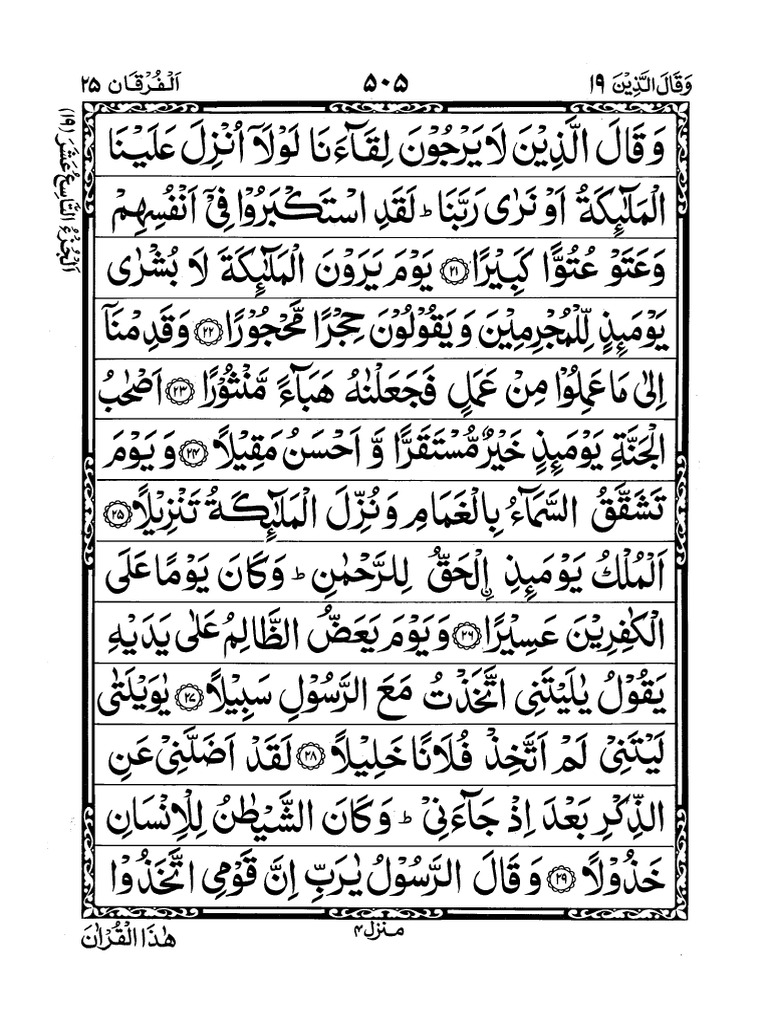 وَقَالَ الَّذِيْنَ ١٩
٥٠٥
اَلْفُرْقَان ٢٥
اَلْجُزْءُ التَّاسِعُ عَشَرَ (١٩)
وَقَالَ الَّذِيْنَ لَا يَرْجُوْنَ لِقَآءَنَا لَوْلَاۤ اُنْزِلَ عَلَيْنَا
الْمَلٰٓئِكَةُ اَوْ نَرٰى رَبَّنَا ؕ لَقَدِ اسْتَكْبَرُوْا فِيْۤ اَنْفُسِهِمْ
وَعَتَوْ عُتُوًّا كَبِيْرًا ﴿٢١﴾ يَوْمَ يَرَوْنَ الْمَلٰٓئِكَةَ لَا بُشْرٰى
يَوْمَئِذٍ لِّلْمُجْرِمِيْنَ وَيَقُوْلُوْنَ حِجْرًا مَّحْجُوْرًا ﴿٢٢﴾ وَقَدِمْنَاۤ
اِلٰى مَا عَمِلُوْا مِنْ عَمَلٍ فَجَعَلْنٰهُ هَبَآءً مَّنْثُوْرًا ﴿٢٣﴾ اَصْحٰبُ
الْجَنَّةِ يَوْمَئِذٍ خَيْرٌ مُّسْتَقَرًّا وَّ اَحْسَنُ مَقِيْلًا ﴿٢٤﴾ وَيَوْمَ
تَشَقَّقُ السَّمَآءُ بِالْغَمَامِ وَنُزِّلَ الْمَلٰٓئِكَةُ تَنْزِيْلًا ﴿٢٥﴾
اَلْمُلْكُ يَوْمَئِذِ ۨالْحَقُّ لِلرَّحْمٰنِ ؕ وَكَانَ يَوْمًا عَلَى
الْكٰفِرِيْنَ عَسِيْرًا ﴿٢٦﴾ وَيَوْمَ يَعَضُّ الظَّالِمُ عَلٰى يَدَيْهِ
يَقُوْلُ يٰلَيْتَنِى اتَّخَذْتُ مَعَ الرَّسُوْلِ سَبِيْلًا ﴿٢٧﴾ يٰوَيْلَتٰى
لَيْتَنِيْ لَمْ اَتَّخِذْ فُلَانًا خَلِيْلًا ﴿٢٨﴾ لَقَدْ اَضَلَّنِيْ عَنِ
الذِّكْرِ بَعْدَ اِذْ جَآءَنِيْ ؕ وَكَانَ الشَّيْطٰنُ لِلْاِنْسَانِ
خَذُوْلًا ﴿٢٩﴾ وَقَالَ الرَّسُوْلُ يٰرَبِّ اِنَّ قَوْمِى اتَّخَذُوْا
منزل ٤
هٰذَا الْقُرْاٰنَ